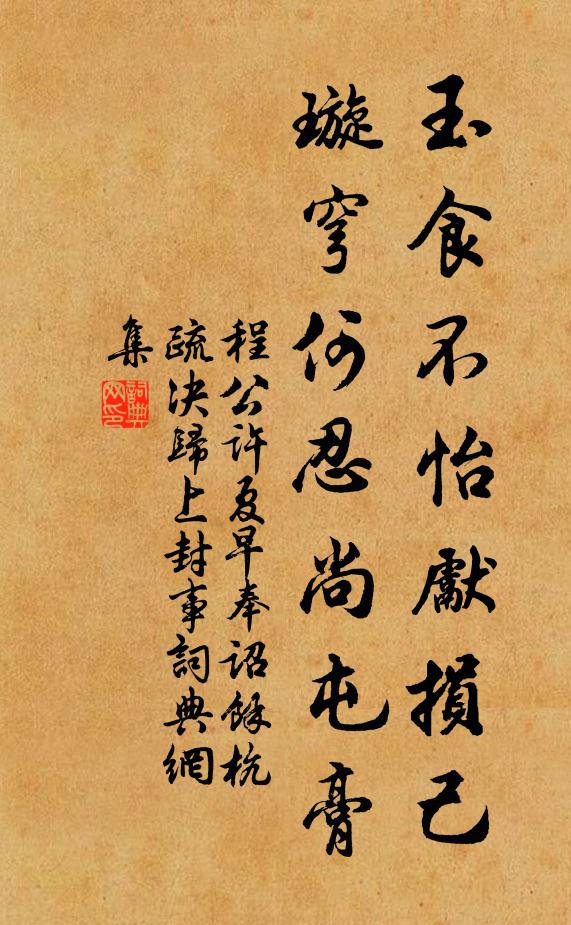 玉食不怡獻損己
璇穹何忍尚屯膏
程公許夏早奉詔餘杭
疏決歸上封事詞典網
集
詞典
网印